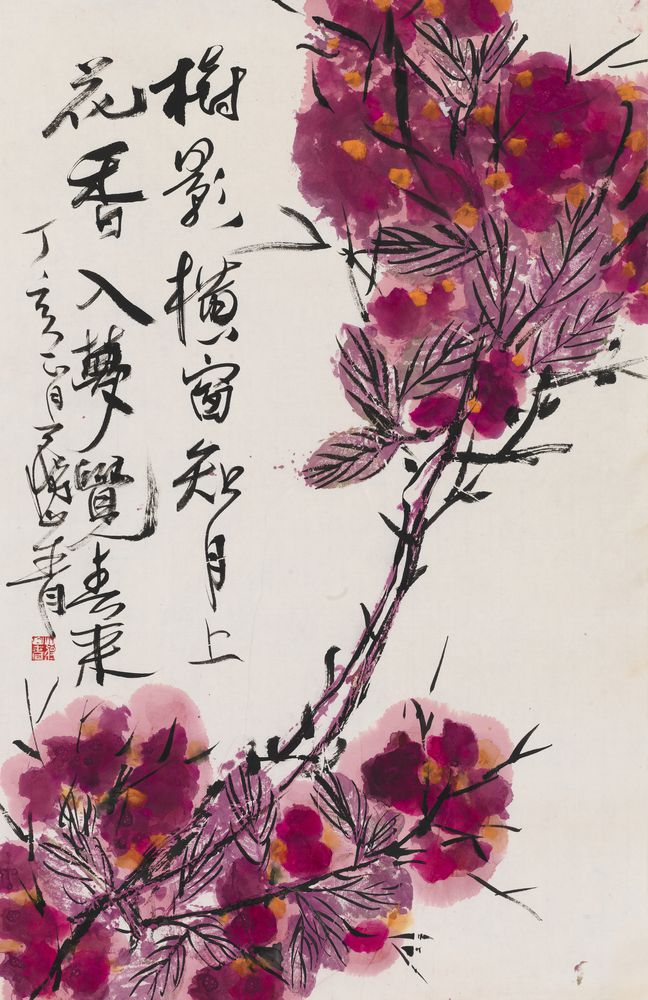 樹影橫窗知月上
花香入夢覺春來
丁亥